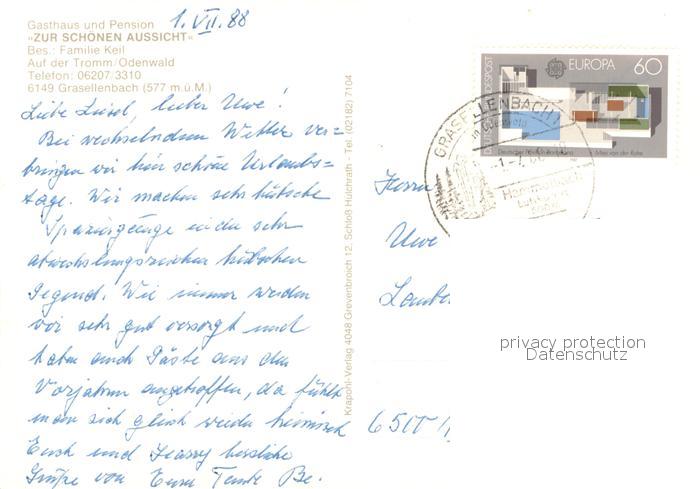 Gasthaus und Pension
»ZUR SCHÖNEN AUSSICHT«
Bes.: Familie Keil
Auf der Tromm/Odenwald
Telefon: 06207/3310
6149 Grasellenbach (577 m.ü.M.)
1. VII. 88
Liebe Liesel, lieber Uwe!
Bei wechselndem Wetter ver=
bringen wir hier schöne Urlaubs=
tage. Wir machen sehr hübsche
Spaziergänge in der sehr
abwechslungsreichen hübschen
Gegend. Wie immer werden
wir sehr gut versorgt und
haben auch Gäste aus den
Vorjahren angetroffen, da fühlt
man sich gleich wieder heimisch
Euch und herzliche
Grüße von Eurer Tante Be.
Krapohl-Verlag 4048 Grevenbroich 12, Schloß Hülchrath - Tel. (02182) 7104
EUROPA 60
GRASELLENBACH 1
im Odenwald
Herrn
Uwe
privacy protection
Datenschutz